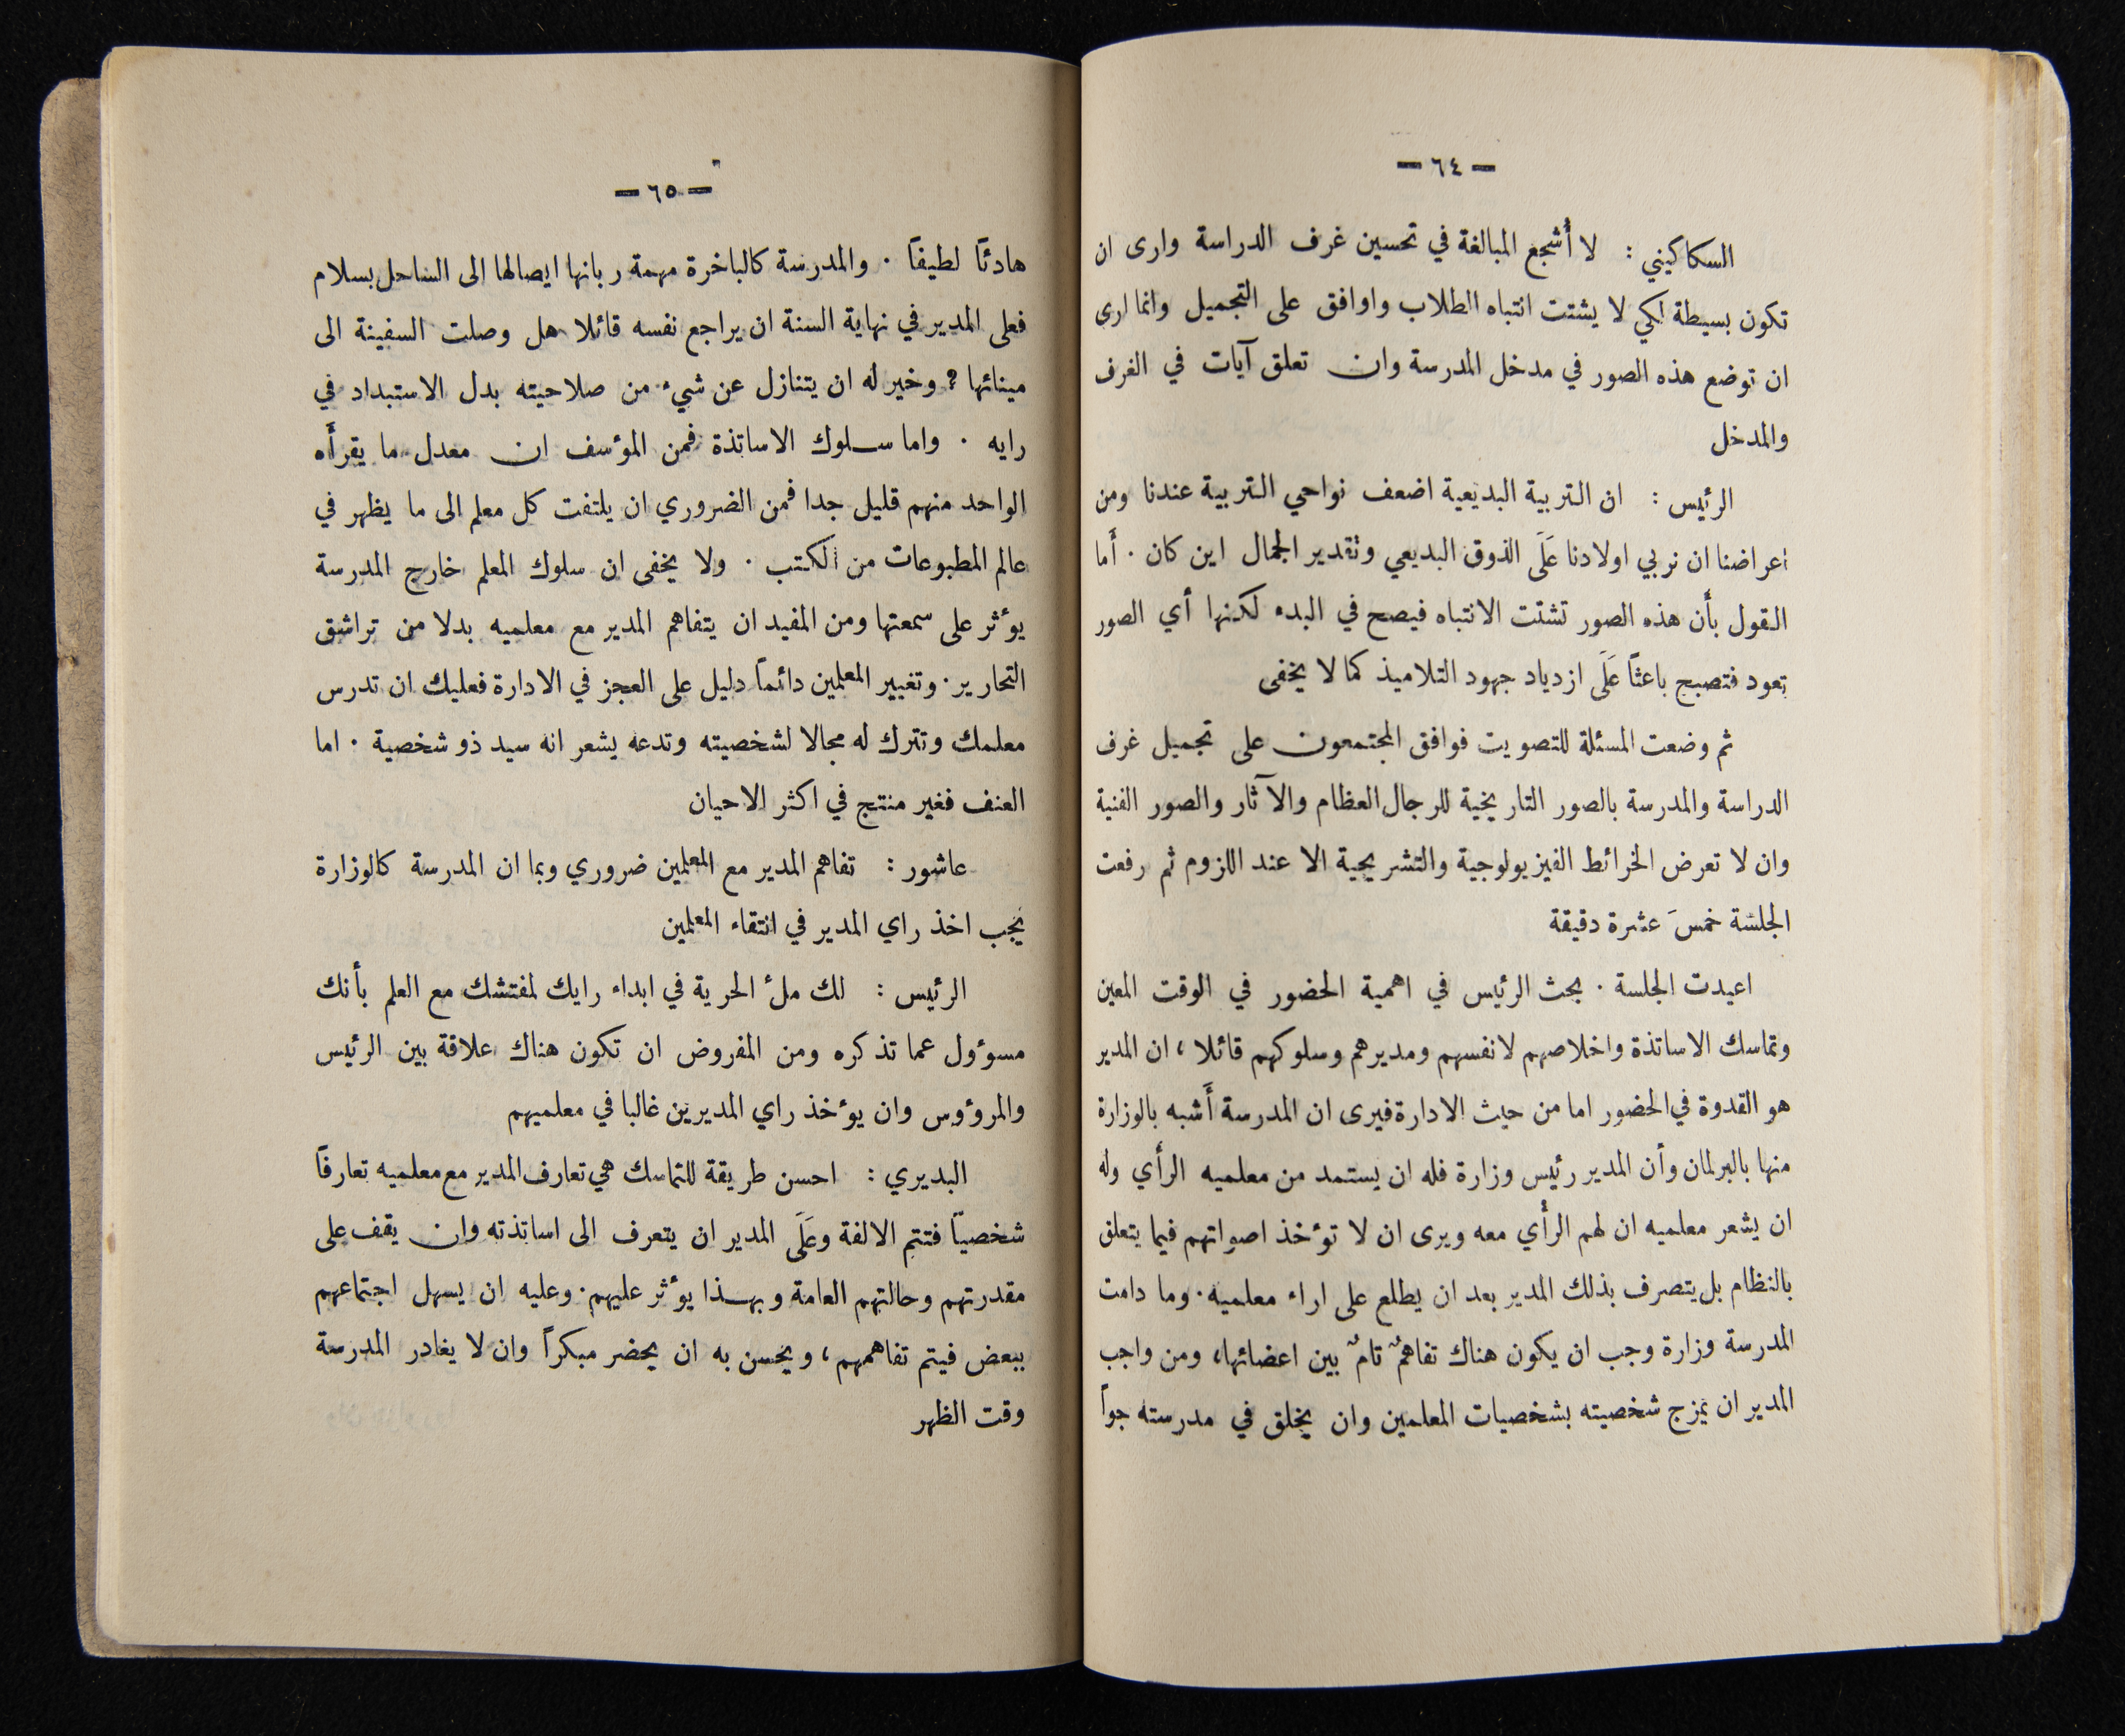 — ٦٤ —
السكاكيني : لا أشجع المبالغة في تحسين غرف الدراسة وارى ان
تكون بسيطة لكي لا يشتت انتباه الطلاب واوافق على التجميل وانما ارى
ان توضع هذه الصور في مدخل المدرسة وان تعلق آيات في الغرف
والمدخل
الرئيس : ان التربية البديعية اضعف نواحي التربية عندنا ومن
اعراضنا ان نربي اولادنا عَلَى الذوق البديعي وتقدير الجمال اين كان . أَما
القول بأَن هذه الصور تشتت الانتباه فيصح في البدء لكنها أي الصور
تعود فتصبح باعثاً عَلَى ازدياد جهود التلاميذ كما لا يخفى
ثم وضعت المسئلة للتصويت فوافق المجتمعون على تجميل غرف
الدراسة والمدرسة بالصور التاريخية للرجال العظام والآثار والصور الفنية
وان لا تعرض الخرائط الفيزيولوجية والتشريحية الا عند اللزوم ثم رفعت
الجلسة خمسَ عشرة دقيقة
اعيدت الجلسة . بحث الرئيس في اهمية الحضور في الوقت المعين
وتماسك الاساتذة واخلاصهم لانفسهم ومديرهم وسلوكهم قائلا ، ان المدير
هو القدوة في الحضور اما من حيث الادارة فيرى ان المدرسة أَشبه بالوزارة
منها بالبرلمان وأن المدير رئيس وزارة فله ان يستمد من معلميه الرأي وله
ان يشعر معلميه ان لهم الرأي معه ويرى ان لا تؤخذ اصواتهم فيما يتعلق
بالنظام بل يتصرف بذلك المدير بعد ان يطلع على اراء معلميه . وما دامت
المدرسة وزارة وجب ان يكون هناك تفاهمٌ تامٌ بين اعضائها، ومن واجب
المدير ان يمزج شخصيته بشخصيات المعلمين وان يخلق في مدرسته جواً
— ٦٥ —
هادئاً لطيفاً . والمدرسة كالباخرة مهمة ربانها ايصالها الى الساحل بسلام
فعلى المدير في نهاية السنة ان يراجع نفسه قائلا هل وصلت السفينة الى
مينائها ؟ وخير له ان يتنازل عن شيء من صلاحيته بدل الاستبداد في
رايه . واما سلوك الاساتذة فمن المؤسف ان معدل ما يقرأَه
الواحد منهم قليل جدا فمن الضروري ان يلتفت كل معلم الى ما يظهر في
عالم المطبوعات من الكتب . ولا يخفى ان سلوك المعلم خارج المدرسة
يؤثر على سمعتها ومن المفيد ان يتفاهم المدير مع معلميه بدلا من تراشق
التحارير . وتغيير المعلمين دائماً دليل على العجز في الادارة فعليك ان تدرس
معلمك وتترك له مجالا لشخصيته وتدعه يشعر انه سيد ذو شخصية . اما
العنف فغير منتج في اكثر الاحيان
عاشور : تفاهم المدير مع المعلمين ضروري وبما ان المدرسة كالوزارة
يجب اخذ راي المدير في انتقاء المعلمين
الرئيس : لك ملُ الحرية في ابداء رايك لمفتشك مع العلم بأنك
مسوؤول عما تذكره ومن المفروض ان تكون هناك علاقة بين الرئيس
والمرؤوس وان يؤخذ راي المديرين غالبا في معلميهم
البديري : احسن طريقة للتماسك هي تعارف المدير مع معلميه تعارفاً
شخصيّاً فتتم الالفة وعَلَى المدير ان يتعرف الى اساتذته وان يقف على
مقدرتهم وحالتهم العامة وبهذا يؤثر عليهم . وعليه ان يسهل اجتماعهم
ببعض فيتم تفاهمهم ، ويحسن به ان يحضر مبكراً وان لا يغادر المدرسة
وقت الظهر